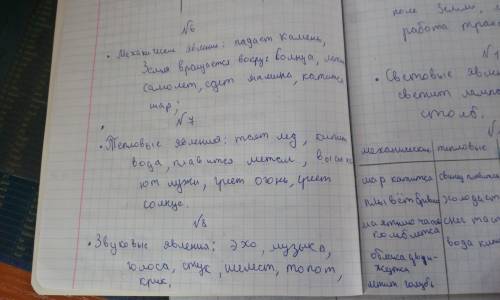 №6
• Механические явления: падает камень,
Земля вращается вокруг солнца, летит
самолёт, едет машина, катится
шар;
№7
• Тепловые явления: таят лед, кипит
вода, плавится металл, высыха
ют лужи, греет огонь, греет
солнце.
№8
• Звуковые явления: эхо, музыка,
голоса, стук, шелест, топот,
крик.
поле Земли,
работа
№
• Световые явле
светит лампо
столб.
механически тепловые
шар катится свинец плавится
плывёт холодает
маятник часов снег тает
колеблется вода кип
облака дви-
жутся
летит голубь